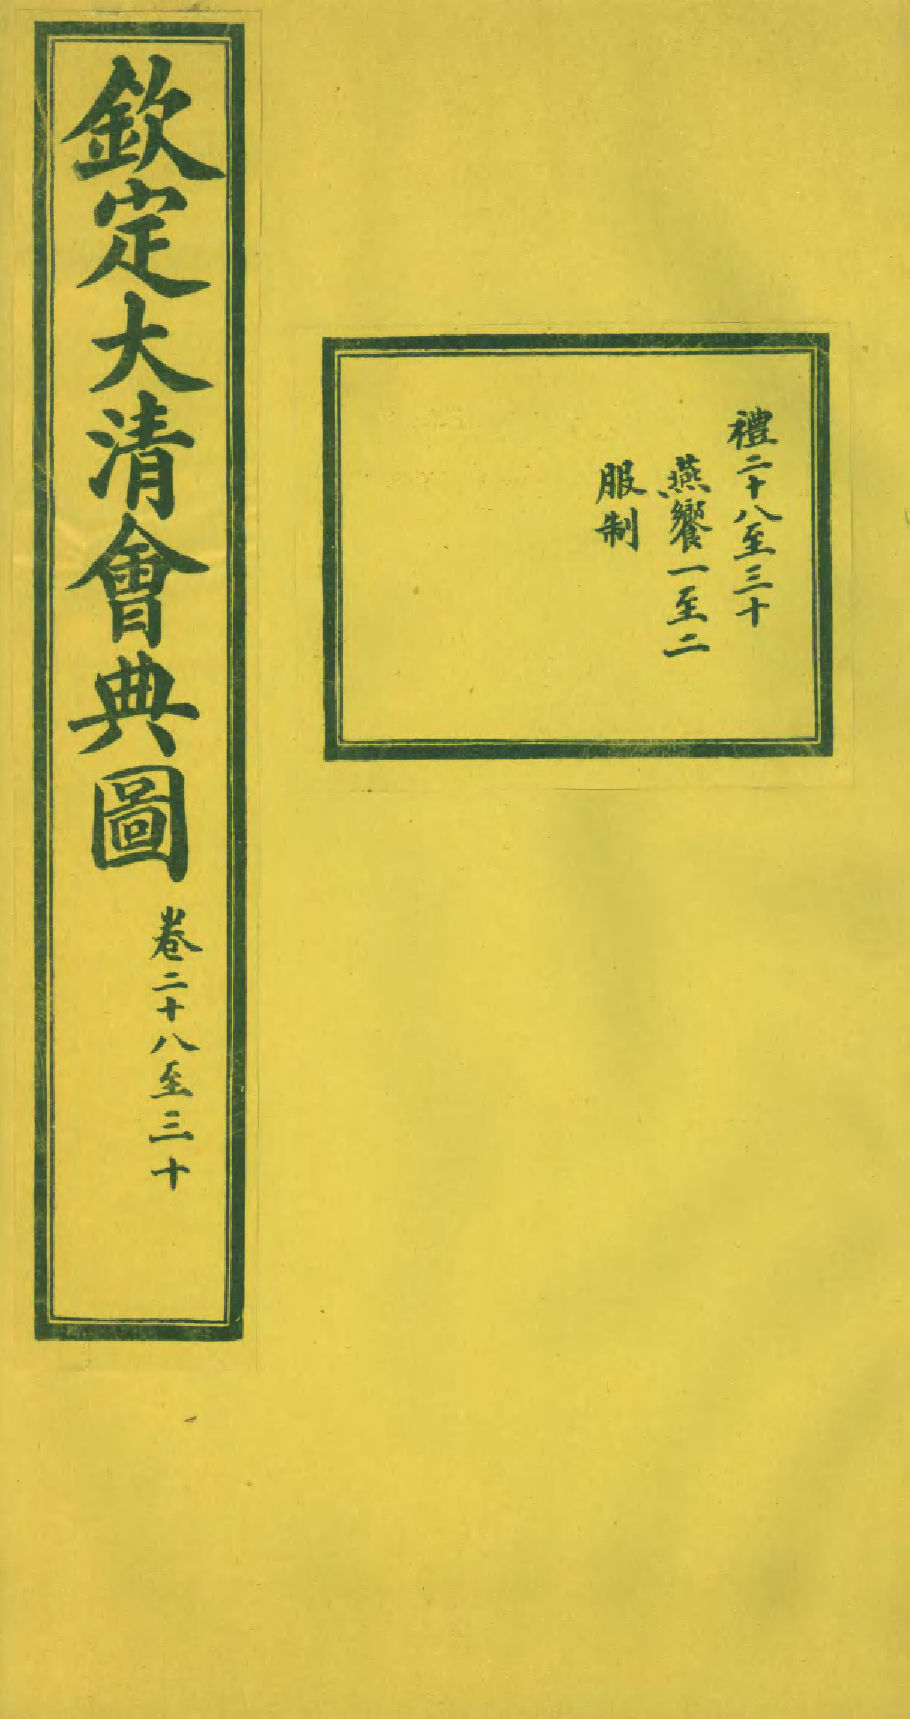 禮二十八至三十
燕饗一至二
服制
欽定大清會典圖
卷二十八至三十